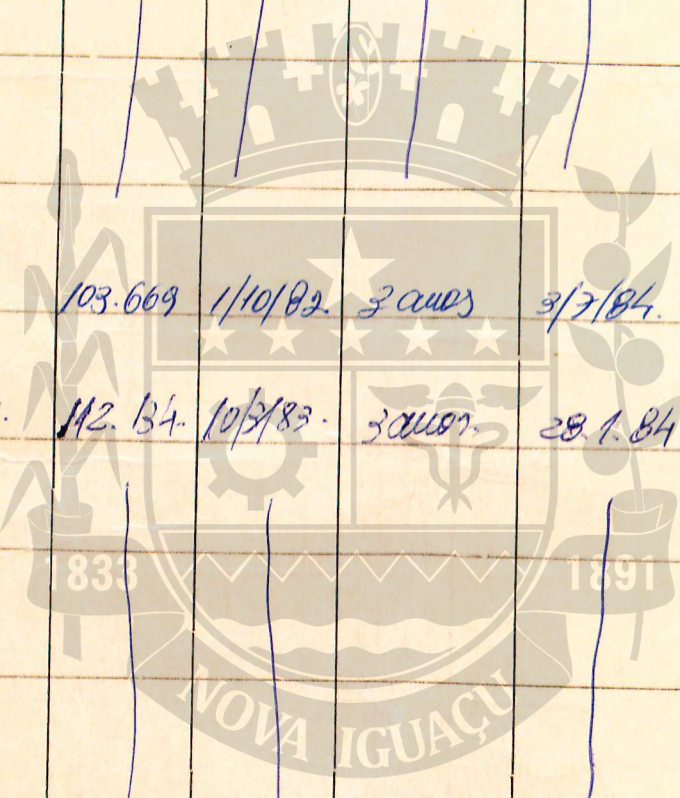 103.669 1/10/82. 3 anos 3/7/84.
112.134. 10/3/83. 3 anos. 28.1.84
1833 1891
NOVA IGUAÇU